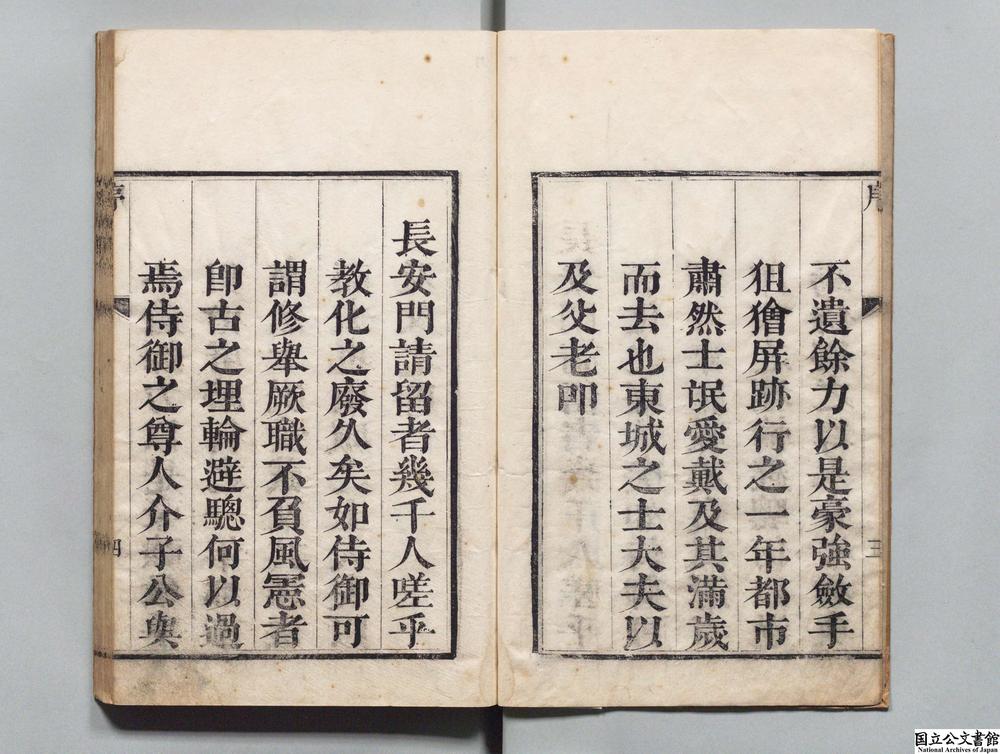 不遺餘力以是豪強斂手
狙獪屏跡行之一年都市
肅然士氓愛戴及其滿歲
而去也東城之士大夫以
及父老叩
長安門請留者幾千人嗟乎
教化之廢久矣如侍御可
謂修舉厥職不負風憲者
卽古之埋輪避驄何以過
焉侍御之尊人介子公與
序
三
四
国立公文書館
National Archives of Japan